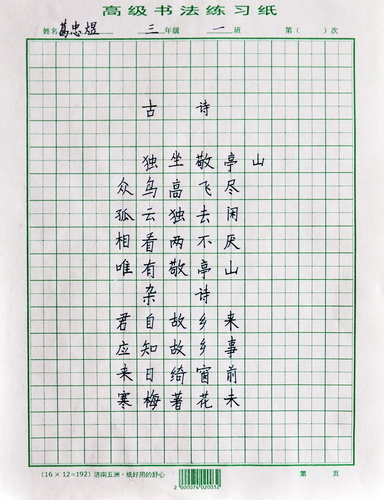 高级书法练习纸
姓名 葛忠煜 三 年级 一 班 第（ ）次
古诗
独坐敬亭山
众鸟高飞尽
孤云独去闲
相看两不厌
唯有敬亭山
杂诗
君自故乡来
应知故乡事
来日绮窗前
寒梅著花未
(16×12=192) 济南五洲·纸好用的舒心 第 页
2 000076 020032